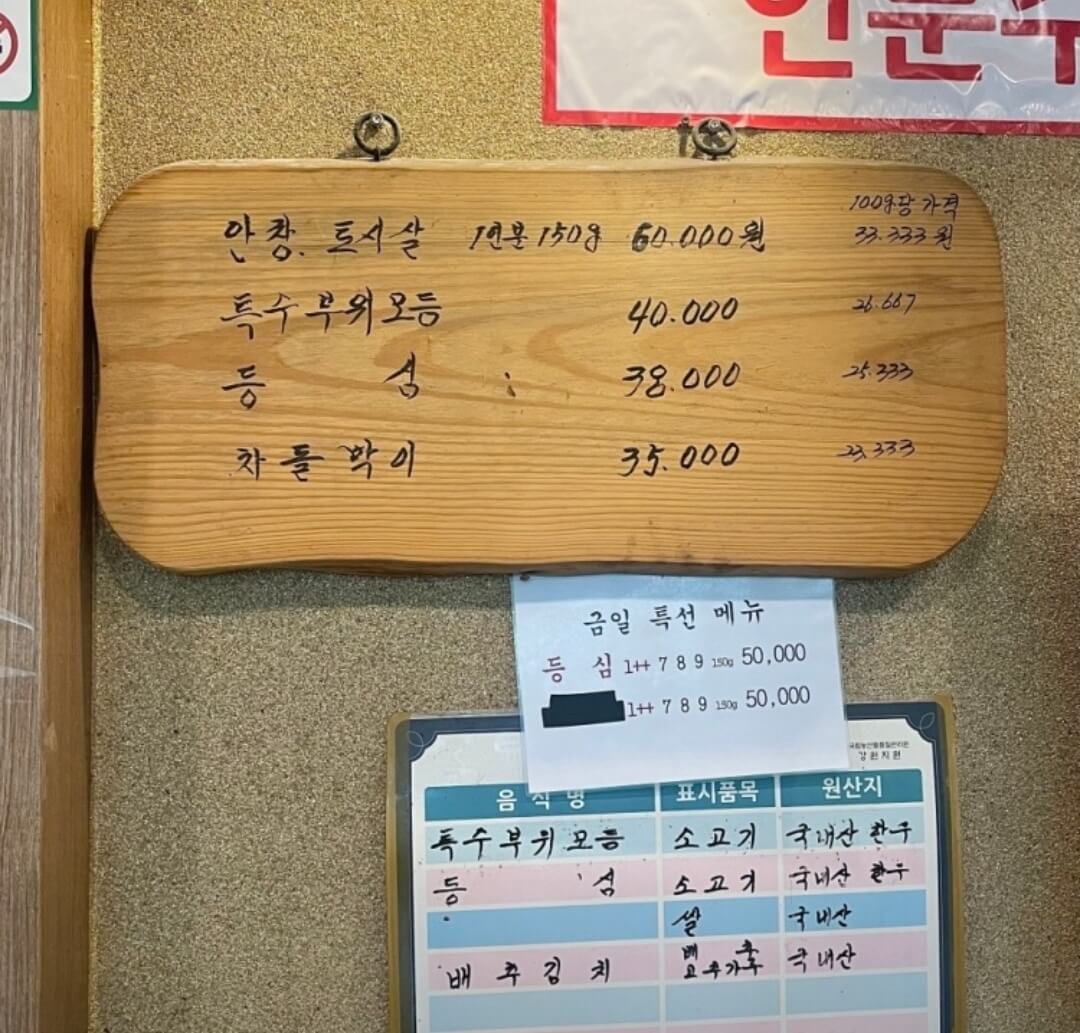 100g당 가격
안창. 토시살 1인분 150g 60.000원 33.333원
특수부위모듬 40.000 26.667
등 심 : 38.000 25.333
차돌박이 35.000 23.333
금일 특선 메뉴
등 심 1++ 7 8 9 150g 50,000
1++ 7 8 9 150g 50,000
국립농산물품질관리원
강원지원
음식명 표시품목 원산지
특수부위모듬 소고기 국내산 한우
등 심 소고기 국내산 한우
쌀 국내산
배추김치 배추 고추가루 국내산